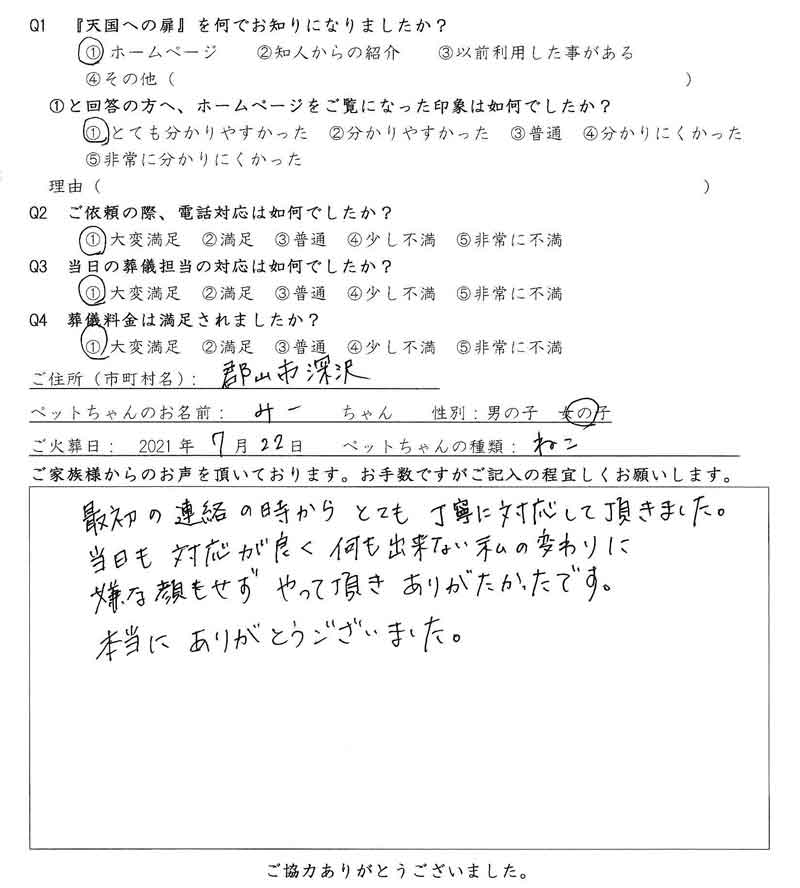 Q1 『天国への扉』を何でお知りになりましたか？
①ホームページ ②知人からの紹介 ③以前利用した事がある
④その他（ ）
①と回答の方へ、ホームページをご覧になった印象は如何でしたか？
①とても分かりやすかった ②分かりやすかった ③普通 ④分かりにくかった
⑤非常に分かりにくかった
理由（ ）
Q2 ご依頼の際、電話対応は如何でしたか？
①大変満足 ②満足 ③普通 ④少し不満 ⑤非常に不満
Q3 当日の葬儀担当の対応は如何でしたか？
①大変満足 ②満足 ③普通 ④少し不満 ⑤非常に不満
Q4 葬儀料金は満足されましたか？
①大変満足 ②満足 ③普通 ④少し不満 ⑤非常に不満
ご住所（市町村名）： 郡山市深沢
ペットちゃんのお名前： みー ちゃん 性別：男の子 女の子
ご火葬日： 2021年 7月 22日 ペットちゃんの種類： ねこ
ご家族様からのお声を頂いております。お手数ですがご記入の程宜しくお願いします。
最初の連絡の時から とても 丁寧に対応して頂きました。
当日も 対応が良く 何も出来ない私の変わりに
嫌な顔もせず やって頂き ありがたかったです。
本当に ありがとうございました。
ご協力ありがとうございました。